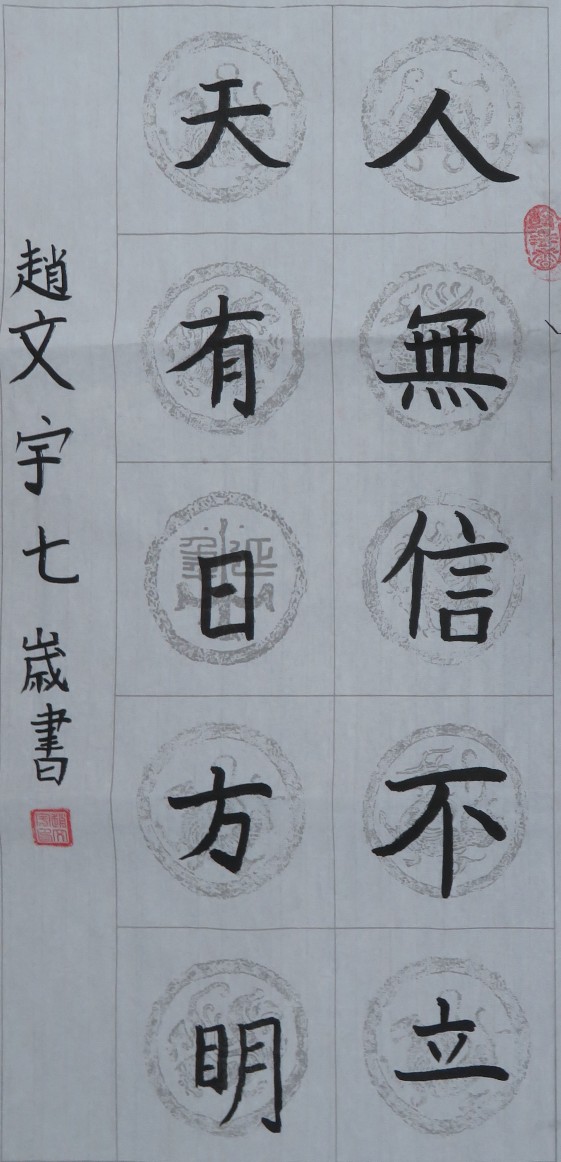 人無信不立
天有日方明
趙文宇七歲書